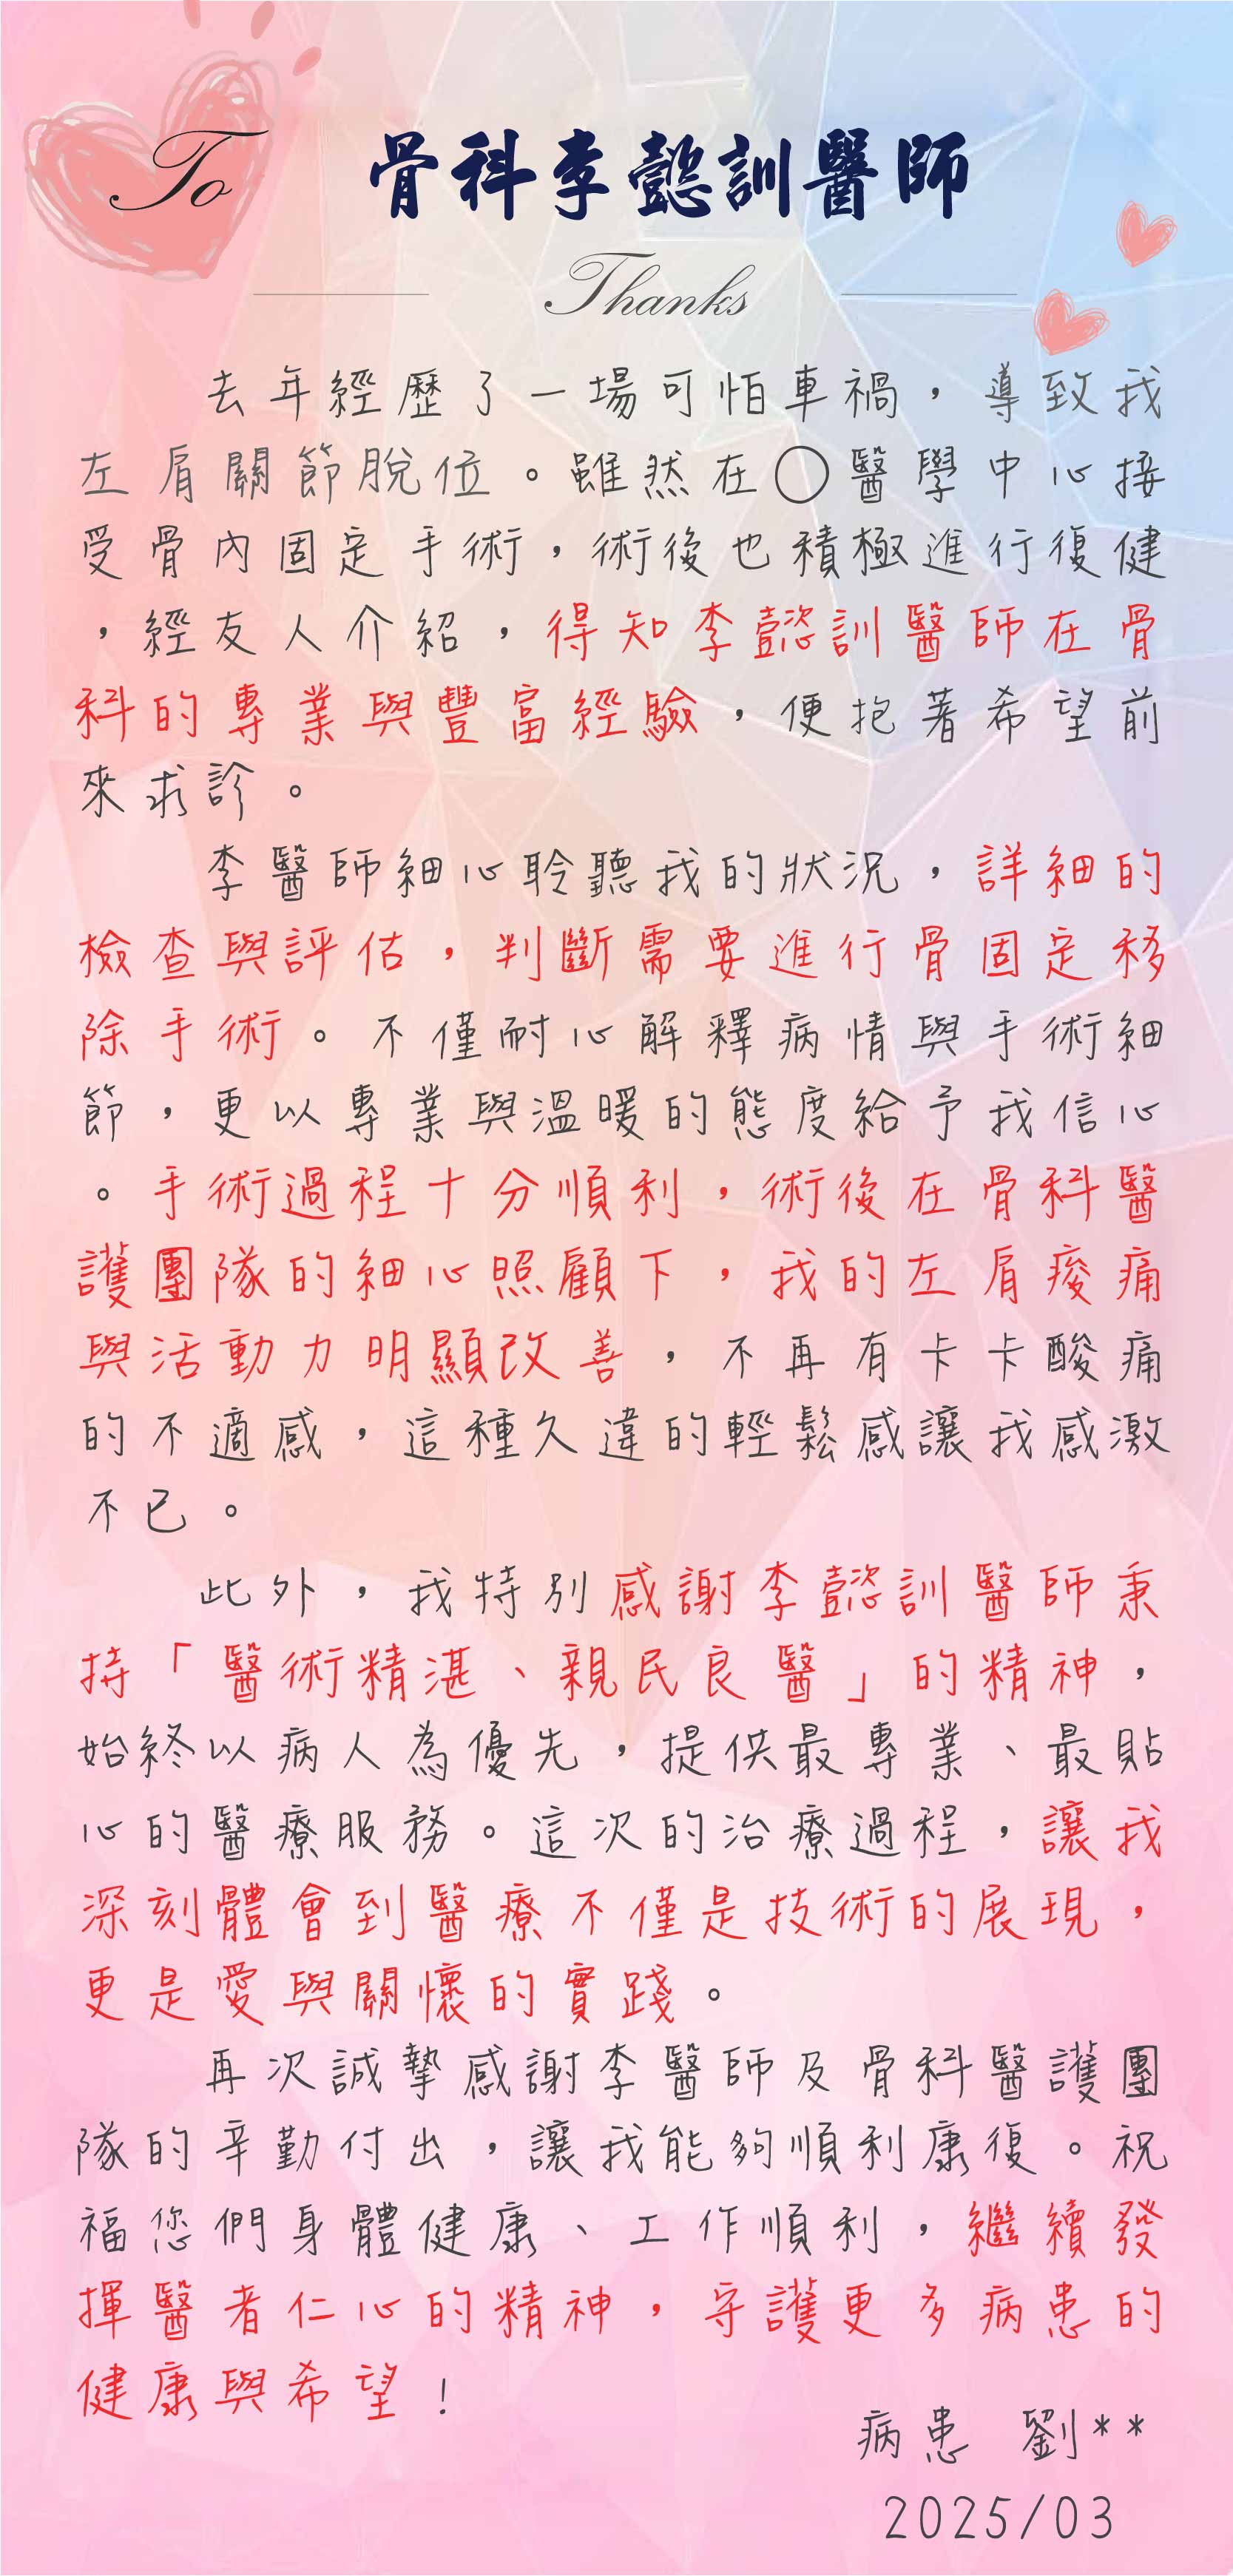 To
骨科李懿訓醫師
Thanks
去年經歷了一場可怕車禍，導致我
左肩關節脫位。雖然在○醫學中心接
受骨內固定手術，術後也積極進行復健
，經友人介紹，得知李懿訓醫師在骨
科的專業與豐富經驗，便抱著希望前
來求診。
李醫師細心聆聽我的狀況，詳細的
檢查與評估，判斷需要進行骨固定移
除手術。不僅耐心解釋病情與手術細
節，更以專業與溫暖的態度給予我信心
。手術過程十分順利，術後在骨科醫
護團隊的細心照顧下，我的左肩痠痛
與活動力明顯改善，不再有卡卡酸痛
的不適感，這種久違的輕鬆感讓我感激
不已。
此外，我特別感謝李懿訓醫師秉
持「醫術精湛、親民良醫」的精神，
始終以病人為優先，提供最專業、最貼
心的醫療服務。這次的治療過程，讓我
深刻體會到醫療不僅是技術的展現，
更是愛與關懷的實踐。
再次誠摯感謝李醫師及骨科醫護團
隊的辛勤付出，讓我能夠順利康復。祝
福您們身體健康、工作順利，繼續發
揮醫者仁心的精神，守護更多病患的
健康與希望！
病患 劉**
2025/03